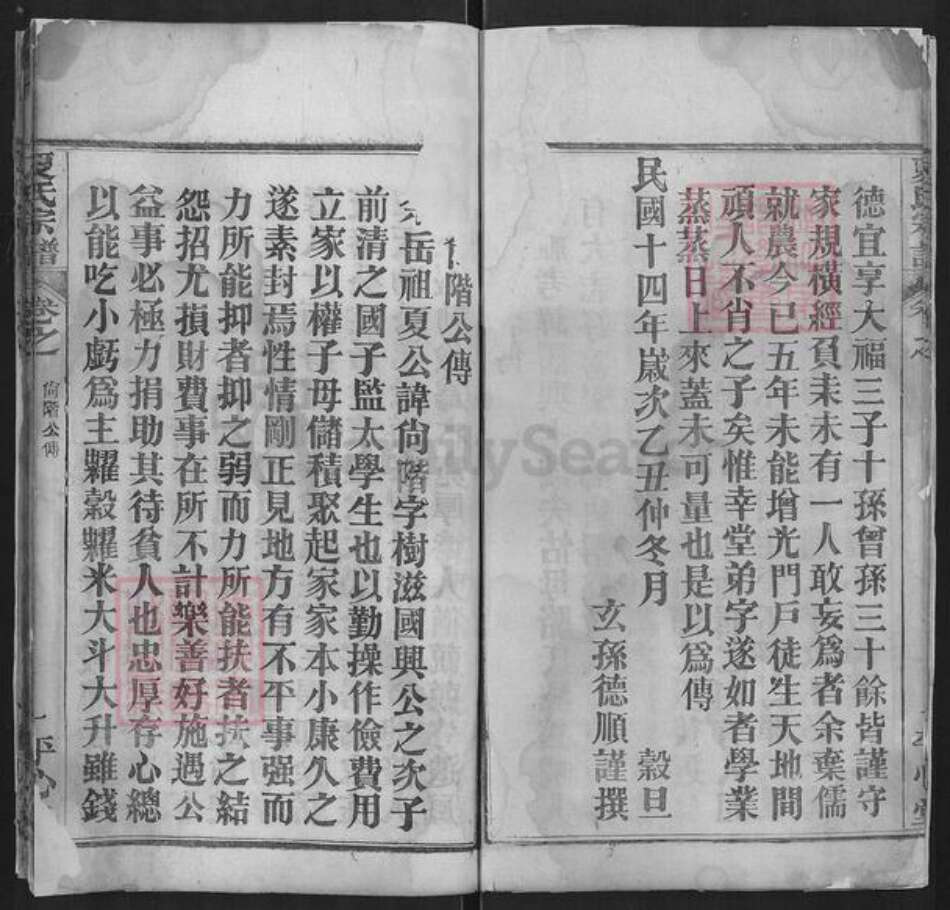 德宜享大福三子十孫曾孫三十餘皆謹守
家規橫經負耒未有一人敢妄為者余棄儒
就農今已五年未能增光門戶徒生天地間
頑人不肖之子矣惟幸堂弟字遂如者學業
蒸蒸日上來蓋未可量也是以為傳
民國十四年嵗次乙丑仲冬月 穀旦
玄孫德順謹撰
階公傳
岳祖夏公諱尙階字樹滋國興公之次子
前清之國子監太學生也以勤操作儉費用
立家以權子母儲積聚起家家本小康久之
遂素封焉性情剛正見地方有不平事强而
力所能抑者抑之弱而力所能扶者扶之結
怨招尤損財費事在所不計樂善好施遇公
益事必極力捐助其待貧人也忠厚存心總
以能吃小虧為主糶穀糶米大斗大升雖錢
夏氏宗譜 卷之 尙階公傳